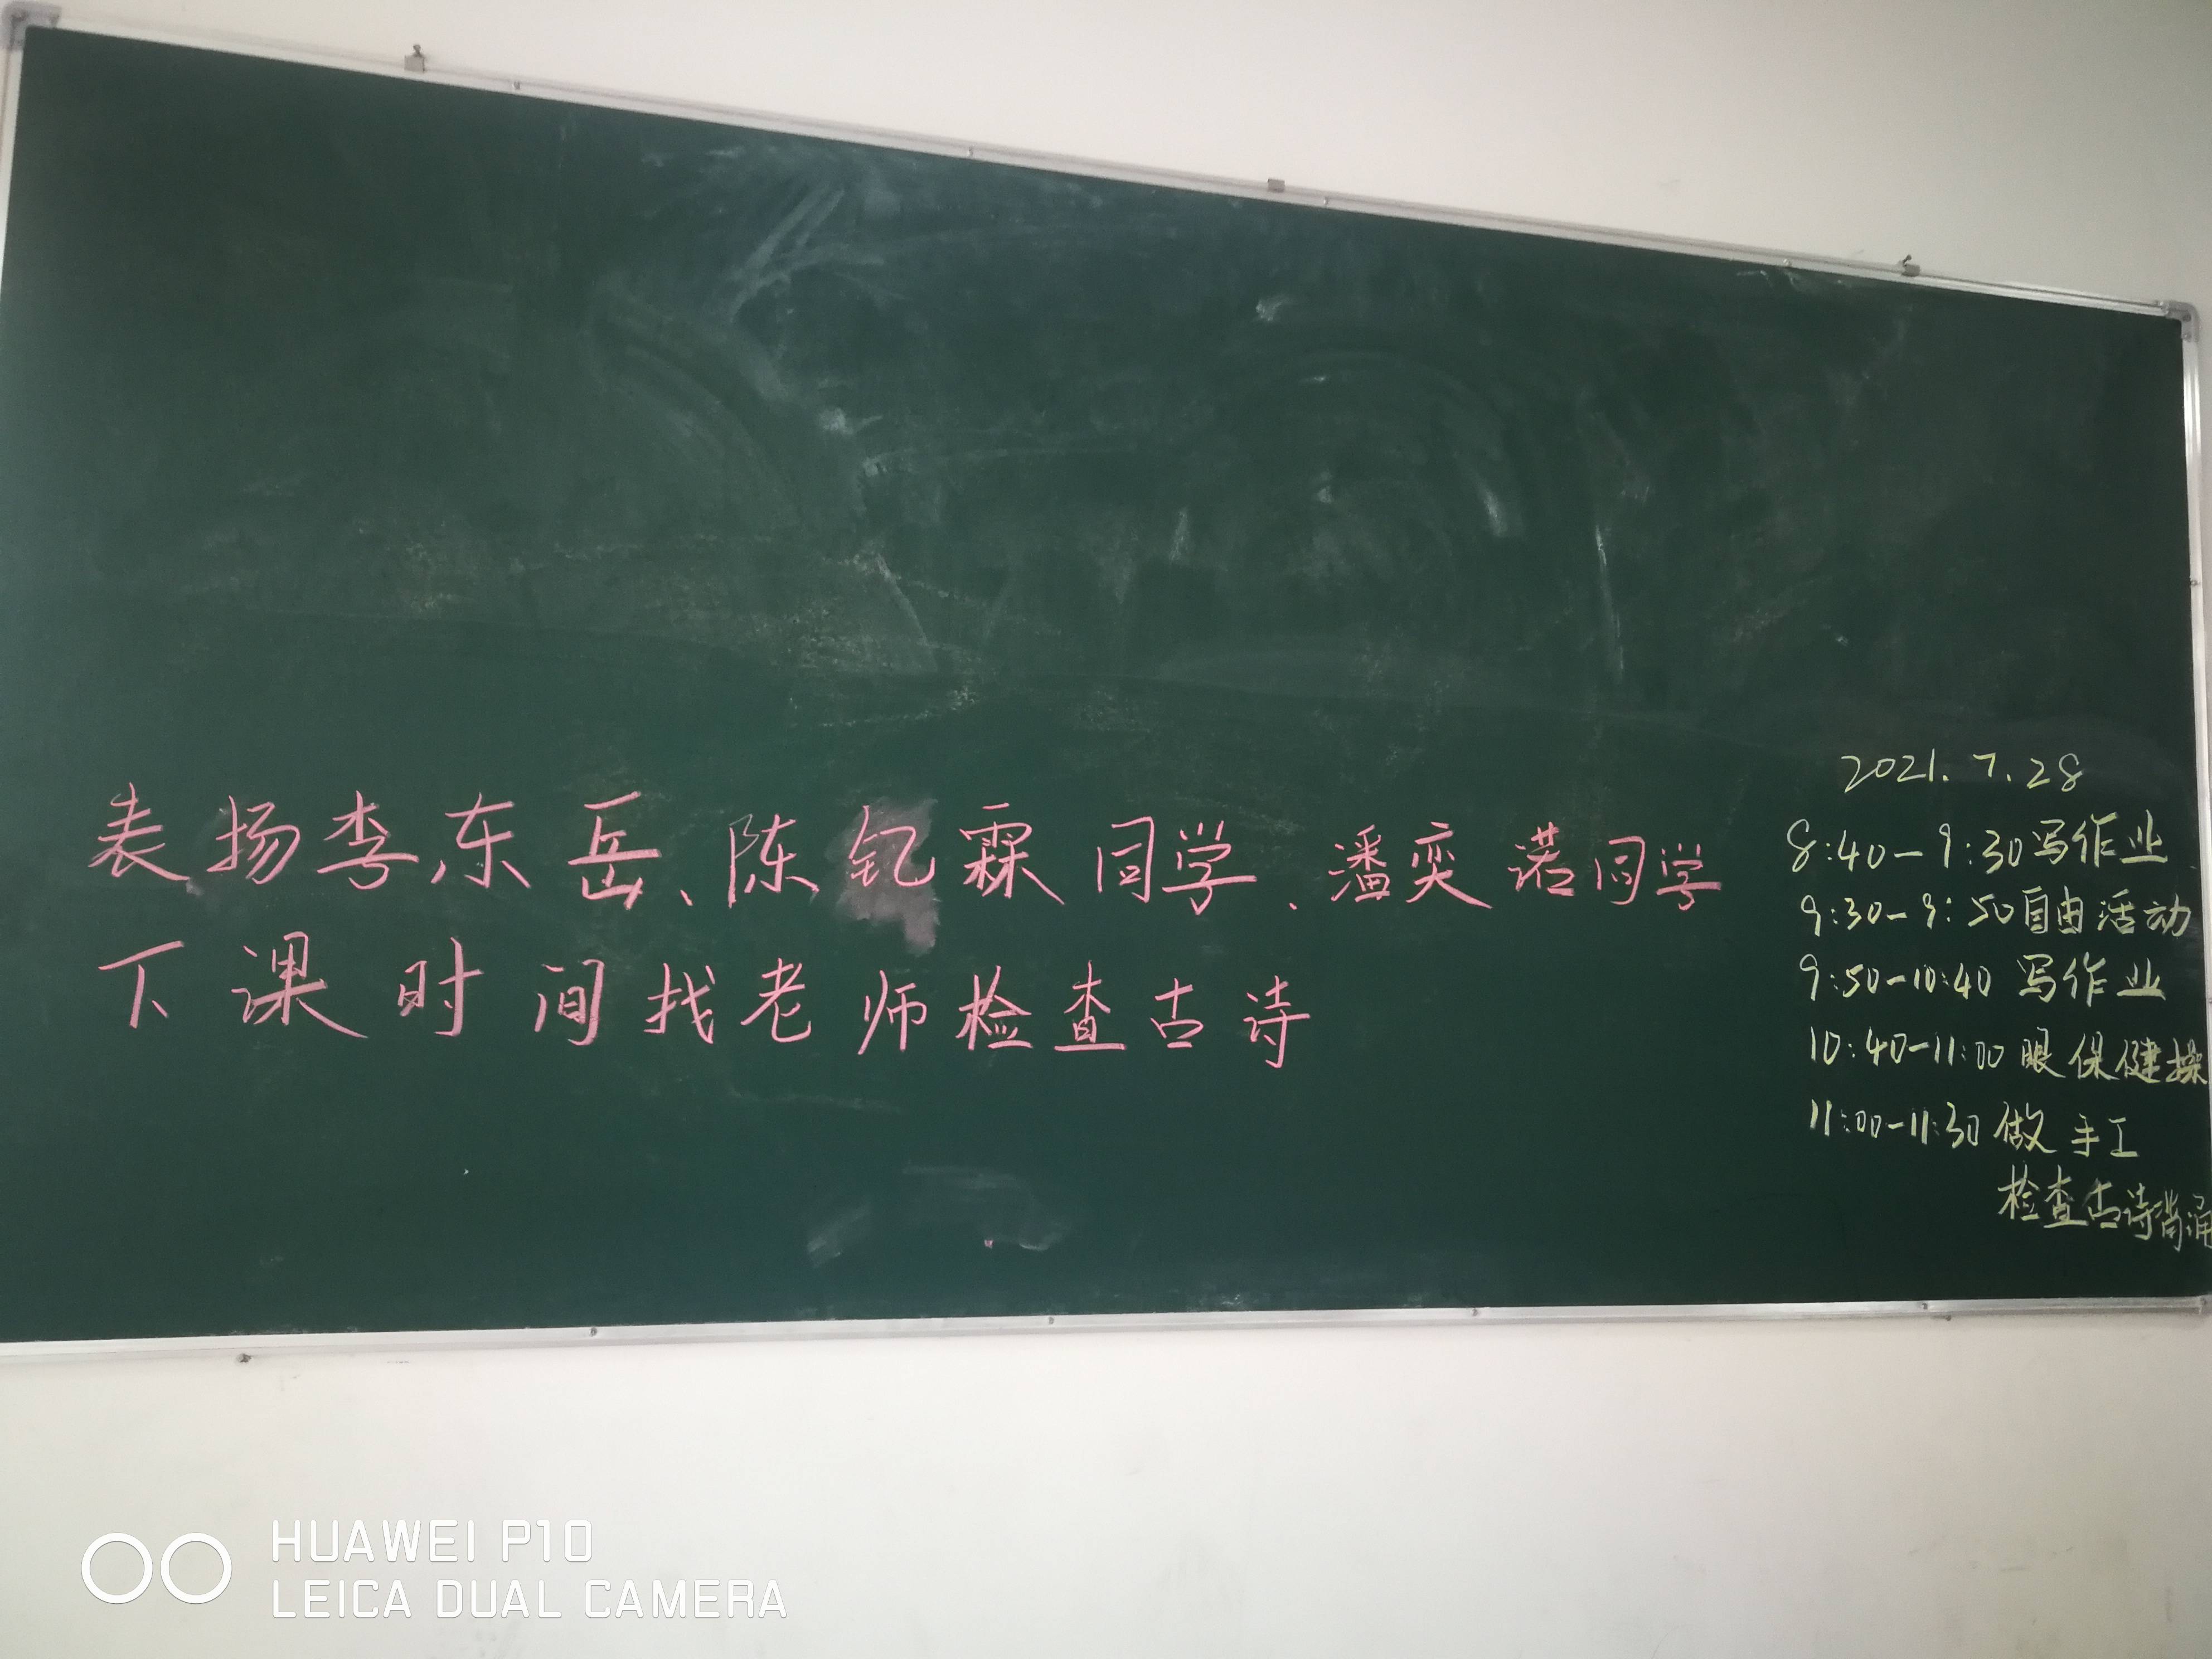 表扬李东岳、陈钇霖同学、潘奕诺同学
下课时间找老师检查古诗
2021.7.28
8:40-9:30写作业
9:30-9:50自由活动
9:50-10:40 写作业
10:40-11:00 眼保健操
11:00-11:30 做手工
检查古诗背诵
HUAWEI P10
LEICA DUAL CAMERA